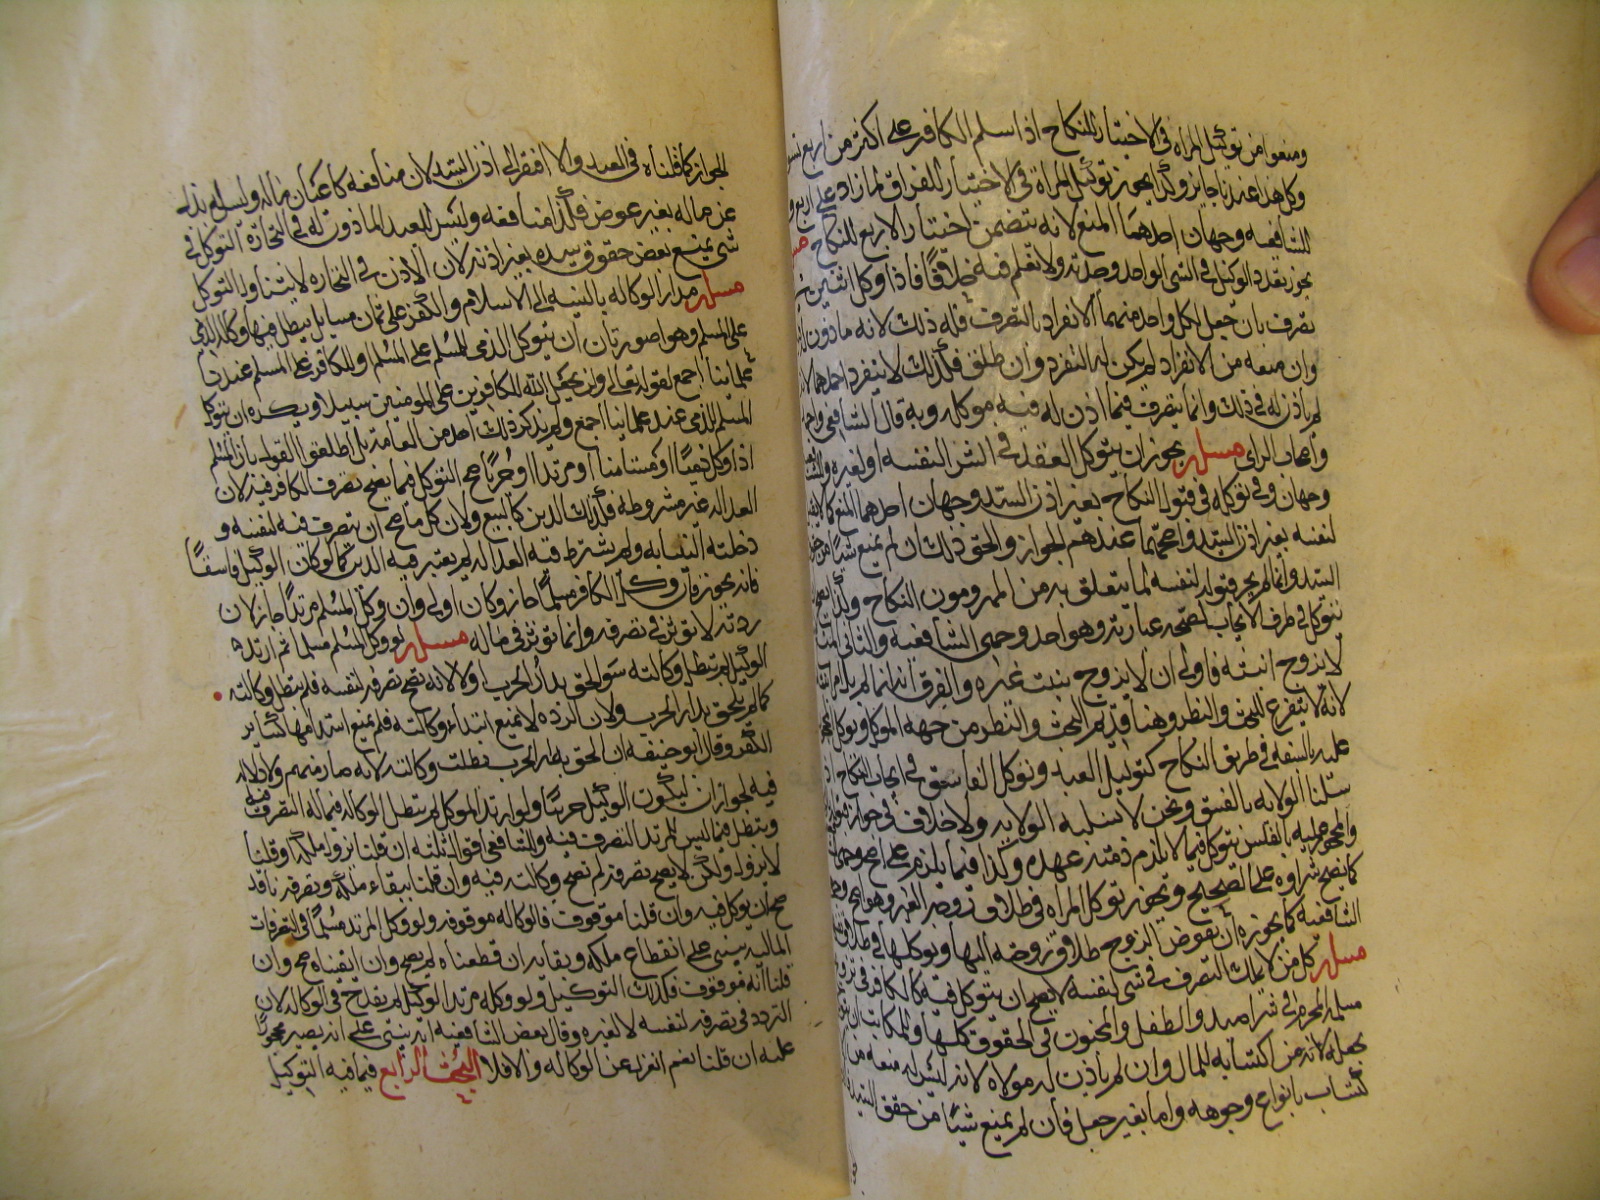 ومنعوا من توكيل المراه في الاختيار للنكاح اذا اسلم الكافر على اكثر من اربع نسو
وكل هذا عندنا جايز وكذا يجوز توكيل المراة في الاختيار للفراق لما زاد على اربع و
للشافعيه وجهان احدهما المنع لانه يتضمن اختيار الاربع للنكاح
يجوز تعدد الوكيل في الشي الواحد وحدته ولا نعلم فيه خلافا فاذا وكل اثنين
تصرف بان جعل لكل واحد منهما الانفراد بالتصرف فله ذلك لانه ماذون
وان منعه من الانفراد لم يكن له التفرد وان طلق فكذلك لا ينفرد احدهما
لم ياذن له في ذلك وانما يتصرف فيما اذن له فيه موكله وبه قال الشافعي
واصحاب الراي مسلة يجوز ان يتوكل العبد في الشرا لنفسه او لغيره
وجهان وفي توكله في قبول النكاح بغير اذن السيد وجهان احدهما المنع كما لا يقبل
لنفسه بغير اذن السيد واصحهما عندهم الجواز والحق ذلك ان لم يمنع شيا من
السيد وانما لم يجز قبوله لنفسه لما يتعلق به من المهر ومون النكاح وكذا
توكل في طرف الايجاب لصحة عبارته وهو احد وجهى الشافعيه والثاني المنع
لا يزوج ابنته فاولى ان لا يزوج بنت غيره والفرق انه انما لم يل امر ابنته
لانه لا يتفرغ للبحث والنظر وهنا قد تم البحث والنظر من جهه الموكل وتوكل المحجور
عليه بالسفه في طريق النكاح كتوكيل العبد وتوكل الفاسق في ايجاب النكاح اذا
سلبنا الولايه بالفسق ونحن لا نسلبه الولايه ولا خلاف في جواز
والمحجور عليه بالفلس يتوكل فيما لا يلزم ذمته عهده وكذا فيما يلزم على اصح وجهى
كما يصح شراوه على الصحيح ويجوز توكل المراه في طلاق زوجه الغير وهو اصح
الشافعيه كما يجوز ان يفوض الزوج طلاق زوجه اليها وتوكلها في طلاق
مسلة كل من لا يملك التصرف في شي لنفسه لا يصح ان يتوكل فيه كالكافر في
مسلمه والمحرم في شرا صيد والطفل والمجنون في الحقوق كلها وللمكاتب ان
بجعل لانه من اكتسابه للمال وان لم ياذن له مولاه لانه ليس له منعه من
لاكتساب بانواع وجوهه واما بغير جعل فان لم يمنع شيا من حقوق السيد
الجواز كما قلناه في العبد والا افتقر الى اذن السيد لان منافعه كاعيان ماله وليس له بذل
عين ماله بغير عوض فكذا منافعه وليس للعبد الماذون له في التجارة التوكل في
شي يمنع بعض حقوق سيده بغير اذنه لان الاذن في التجاره لا يتناول التوكل
مسلة مدار الوكاله بالنسبه الى الاسلام والكفر على ثمان مسايل يبطل منها وكاله الذمي
على المسلم وهو صورتان ان يتوكل الذمي للمسلم على المسلم او للكافر على المسلم عند
علماينا اجمع لقوله تعالى ولن يجعل الله للكافرين على المومنين سبيلا ويكره ان يتوكل
المسلم للذمي عند علماينا اجمع ولم يذكر ذلك احد من العامة بل اطلقوا القول بان المسلم
اذا وكل ذميا او مستامنا او مرتدا او حربيا صح التوكل فيما يصح تصرف الكافر فيه لان
العداله غير مشروطه فكذلك الدين كالبيع ولان كل ما صح ان يتصرف فيه لنفسه و
دخلته النيابه ولم يشترط فيه العداله لم يعتبر فيه الدين كما لو كان الوكيل فاسقا
فانه يجوز فان وكل الكافر مسلما جاز وكان اولى وان وكل المسلم مرتدا جاز لان
ردته لا توثر في تصرفه وانما توثر في ماله مسلة لو وكل المسلم مسلما ثم ارتد
الوكيل لم تبطل وكالته سوا لحق بدار الحرب او لا لانه يصح تصرفه لنفسه فلم تبطل وكالته
كما لو لم يلحق بدار الحرب ولان الرده لا تمنع ابتداء وكالته فلم تمنع استدامتها كساير
الكفر وقال ابو حنيفه ان لحق بدار الحرب بطلت وكالته لانه صار منهم ولا دلاله
فيه لجواز ان يكون الوكيل حربيا ولو ارتد الموكل لم تبطل الوكاله فيما له التصرف فيه
وتبطل فيما ليس للمرتد التصرف فيه وللشافعي اقوال ثلثه ان قلنا يزول ملكه وقلنا
لا يزول ولكن لا يصح تصرفه لم تصح وكالته فيه وان قلنا ببقاء ملكه وتصرفه نافذ
صح ان يوكل فيه وان قلنا موقوف فالوكاله موقوفه ولو وكل المرتد مسلما في التصرفات
الماليه يبنى على انقطاع ملكه وبقايه ان قطعناه لم يصح وان ابقيناه صح وان
قلنا انه موقوف فكذلك التوكيل ولو وكله مرتدا لوكيل لم يقدح في الوكاله لان
التردد في تصرفه لنفسه لا لغيره وقال بعض الشافعيه انه يبنى على انه يصير محجورا
عليه ان قلنا نعم انعزل عن الوكاله والا فلا البحث الرابع فيما فيه التوكيل